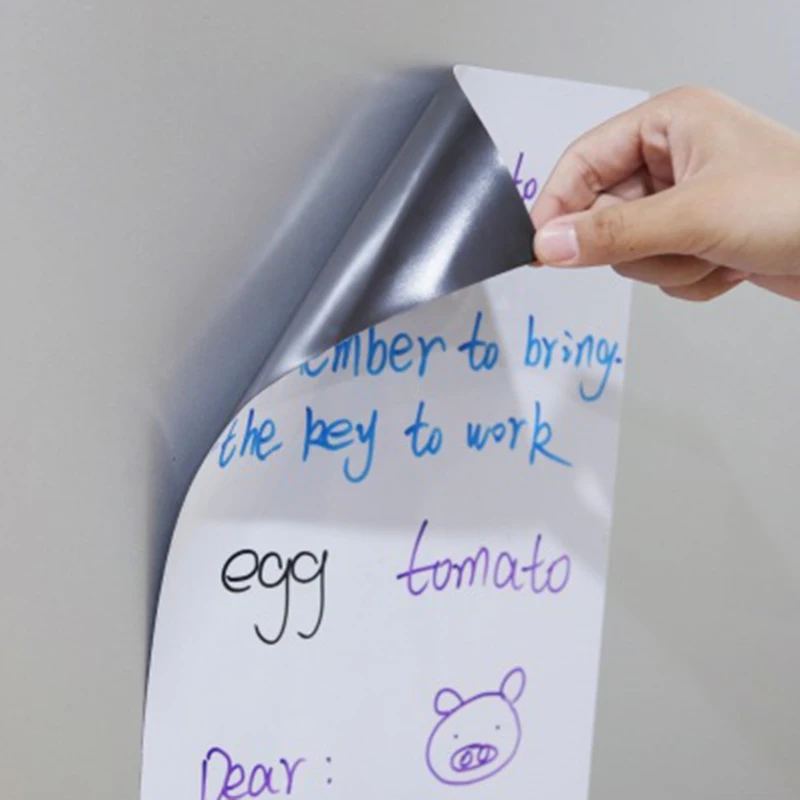 to
ember to bring.
the key to work
egg tomato
Dear: